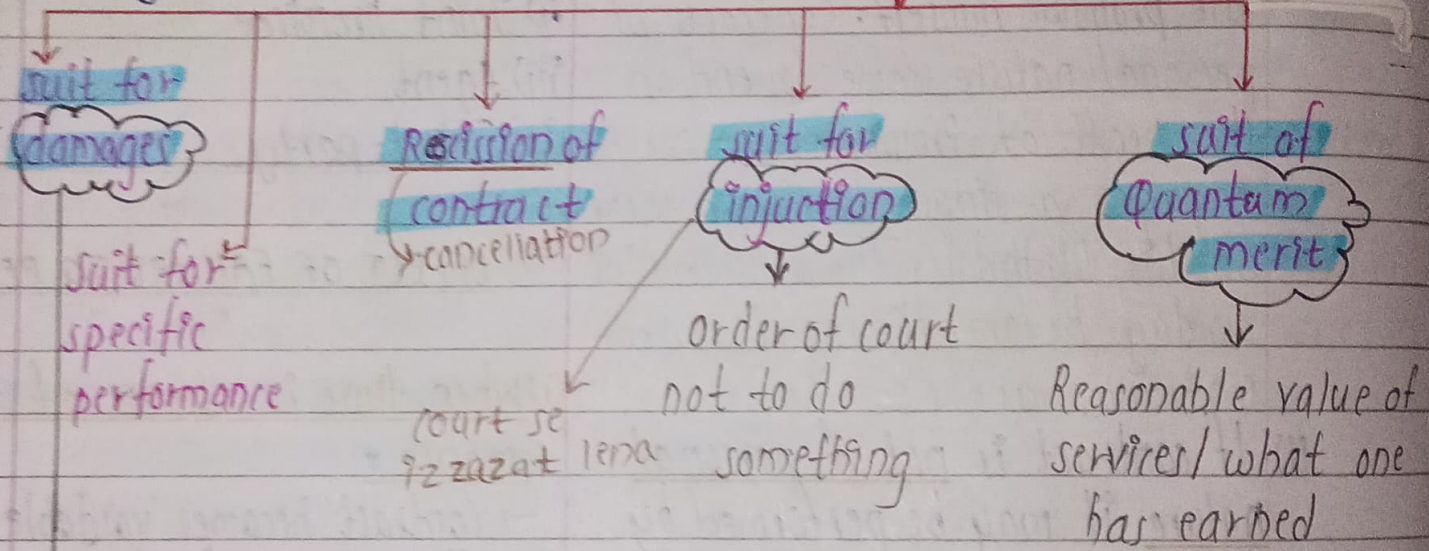 suit for
damages
suit for
specific
performance
Recission of
contract
cancellation
suit for
injuction
court se
izzazat lena
order of court
not to do
something
suit of
Quantum
merit
Reasonable value of
services/ what one
has earned